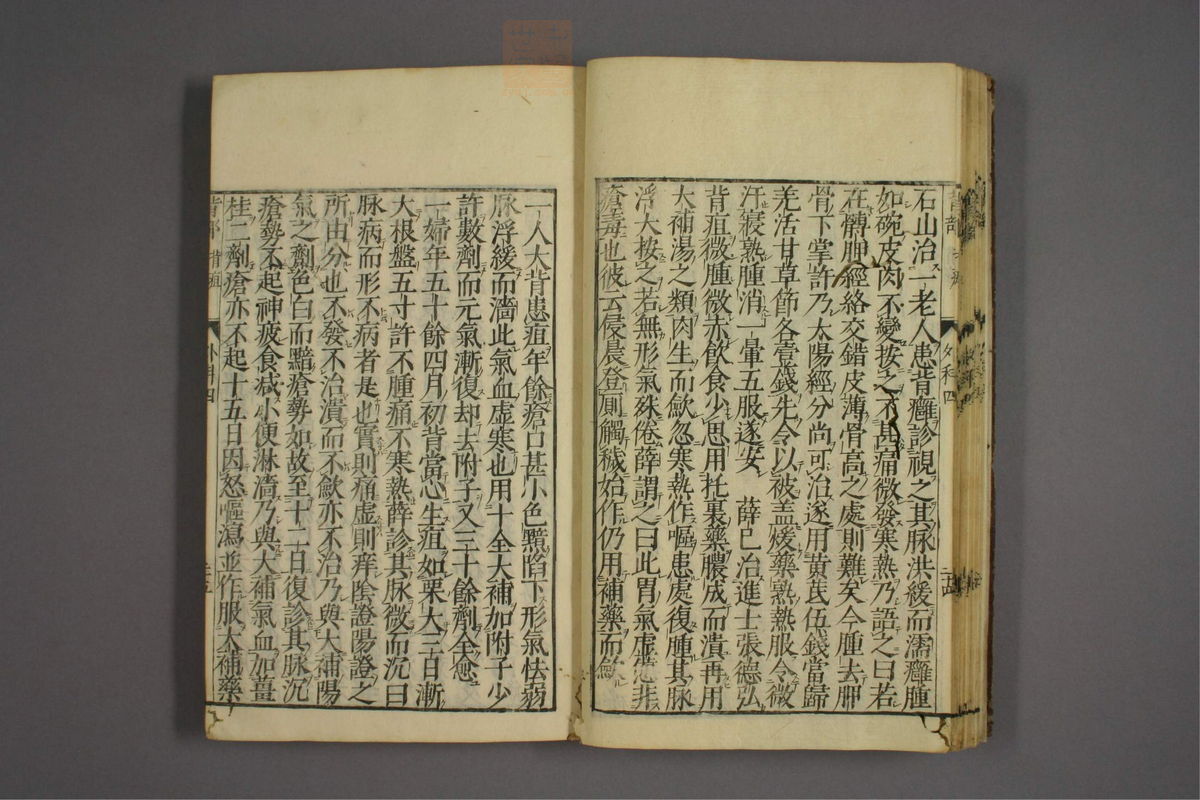 石山治一老人患背癰診視之其脉洪緩而濡癰腫
如碗皮肉不變按之不甚痛微發寒熱乃語之曰若
在髆胛經絡交錯皮薄骨高之處則難矣今腫去胛
骨下掌許乃太陽經分尚可治遂用黄芪伍錢當歸
羌活甘草節各壹錢先令以被盖煖藥熟熱服令微
汗寢熟腫消一暈五服遂安 薛巳治進士張德弘
背疽微腫微赤飲食少思用托裏藥膿成而潰再用
大補湯之類肉生而歛忽寒熱作嘔患處復腫其脉
浮大按之若無形氣殊倦薛謂之曰此胃氣虚憊非
瘡毒也彼云侵晨登厠觸穢始作仍用補藥而歛
一人大背患疽年餘瘡口甚小色黯陷下形氣怯弱
脉浮緩而濇此氣血虚寒也用十全大補加附子少
許數劑而元氣漸復却去附子又三十餘劑全愈
一婦年五十餘四月初背當心生疽如粟大三日漸
大根盤五寸許不腫痛不寒熱薛診其脉微而沉曰
脉病而形不病者是也實則痛虚則痒陰證陽證之
所由分也不發不治潰而不歛亦不治乃與大補陽
氣之劑色白而黯瘡勢如故至十一日復診其脉沉
瘡勢不起神疲食减小便淋濇乃與大補氣血加薑
桂二劑瘡亦不起十五日因怒嘔瀉並作服大補藥
外科四